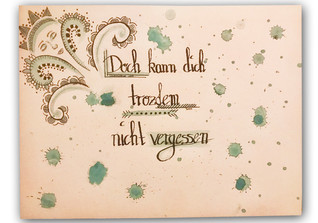 Doch kann dich
trozdem
nicht vergessen